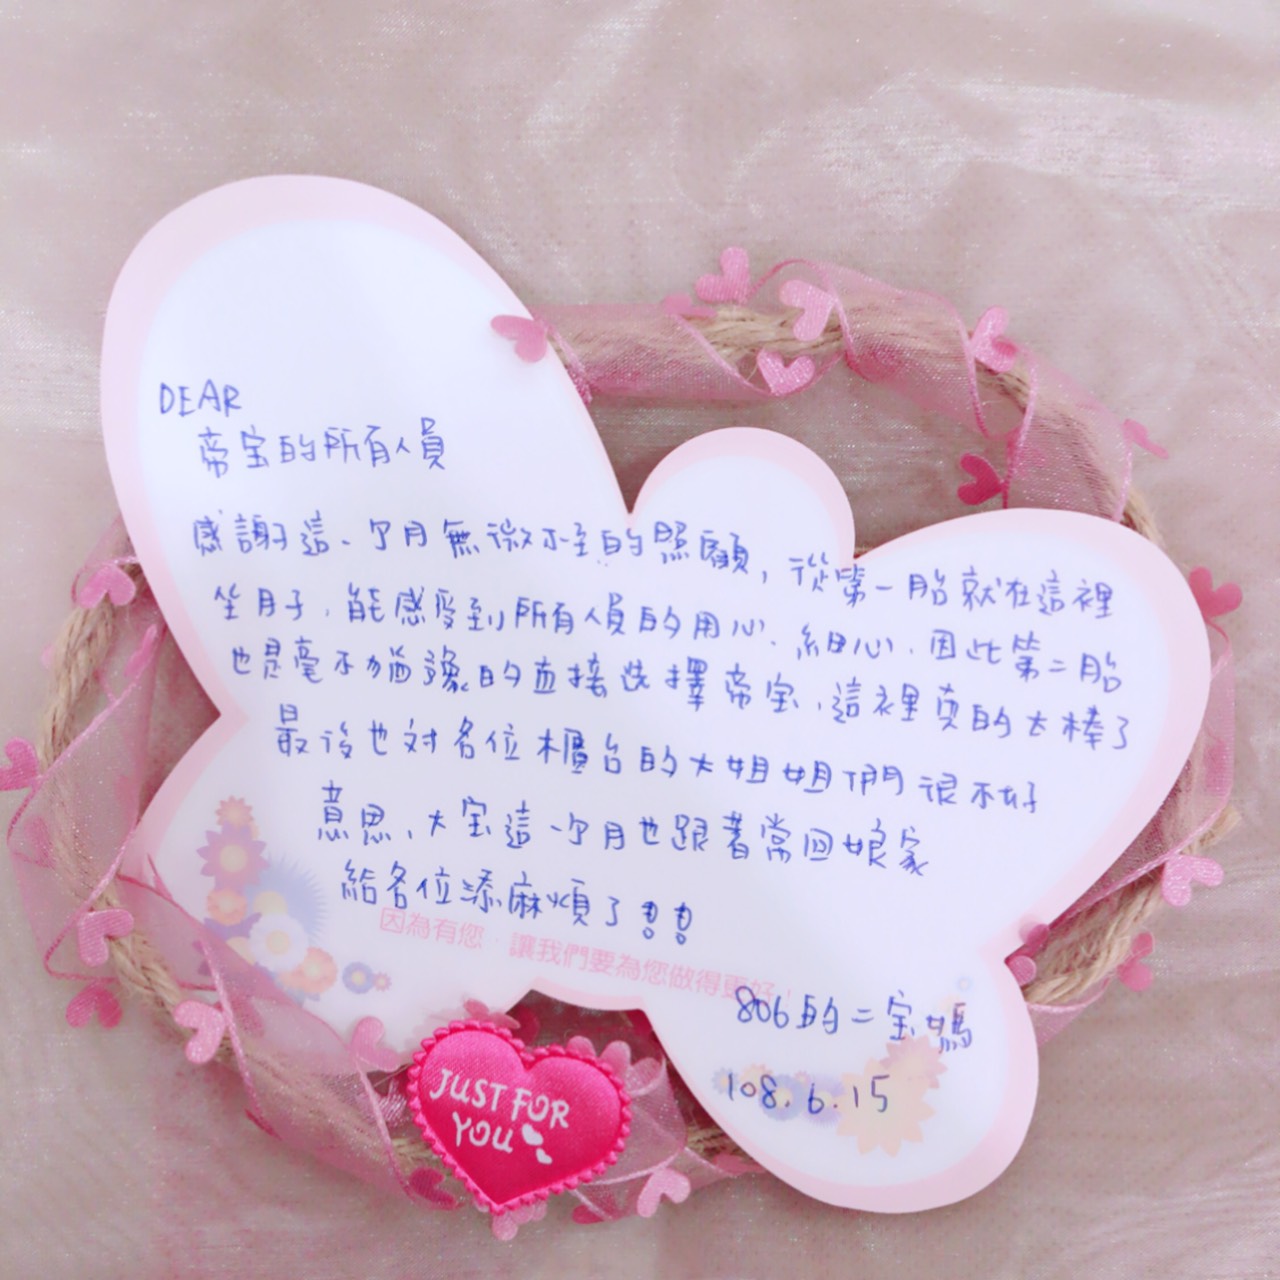 DEAR
帝宝的所有人員
感謝這一个月無微不至的照顧，從第一胎就在這裡
坐月子，能感受到所有人員的用心、細心，因此第二胎
也是毫不猶豫的直接选擇帝宝，這裡真的太棒了
最後也对各位櫃台的大姐姐們很不好
意思，大宝這一个月也跟著常回娘家
給各位添麻煩了!!
因為有您，讓我們要為您做得更好！
806的二宝媽
108.6.15
JUST FOR
YOU